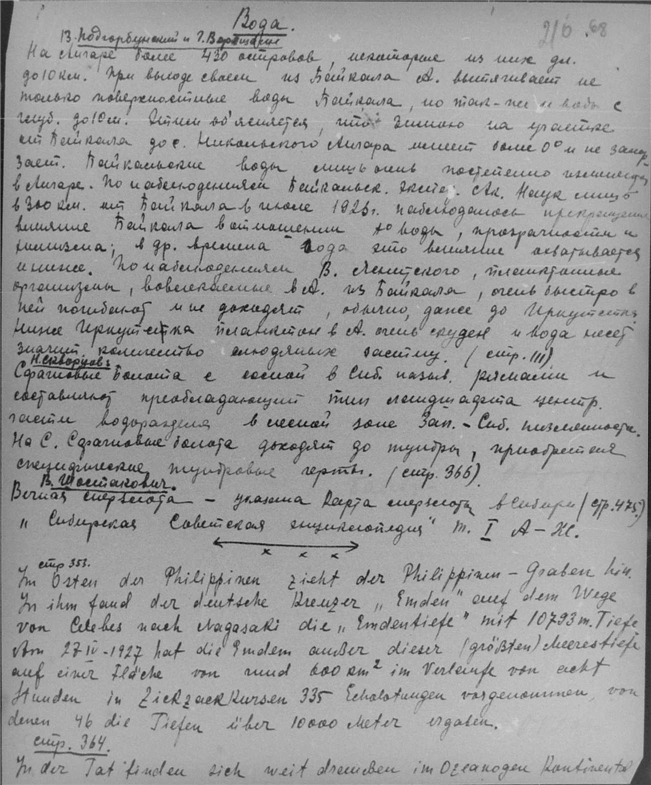 Вода.
2/0 68
В. Подгорбунский и Г. Верещагин
На Ангаре более 420 островов, некоторые из них дл.
до 10 км. При выходе своем из Байкала А. вытягивает не
только поверхностные воды Байкала, но так-же и воды с
глуб. до 10 м. Этим об'ясняется, что зимою на участке
от Байкала до с. Никольского Ангара имеет более 0° и не замер
зает. Байкальские воды лишь очень постепенно
в Ангаре. По наблюдениям Байкальск. экспед. Ак. Наук лишь
в 300 км. от Байкала в июне 1926 г. наблюдалось прекращение
влияние Байкала в отношении t° воды, прозрачности и
химизма; в др. времена года это влияние охватывается
и ниже. По наблюдениям В. Яснитского, планктонные
организмы, вовлекаемые в А. из Байкала, очень быстро в
ней погибают и не доходят, обычно, даже до Иркутска
Ниже Иркутска планктон в А. очень скуден и вода несет
значит. количество слюдяных частиц. (стр. 111)
Н. Скворцовъ
Сфагновые болота с сосной в Сиб. назыв. рямами и
составляют преобладающий тип ландшафта центр.
части водораздела в лесной зоне Зап.-Сиб. низменности.
На С. Сфагновые болота доходят до тундры, приобретая
специфические тундровые черты. (стр. 366).
В. Шостакович.
Вечная мерзлота – указана карта мерзлоты в Сибири (стр. 475)
„Сибирская Советская энциклопедия" т. I А–Ж.
x x x
стр 353.
Im Osten der Philippinen zieht der Philippinen-Graben hin.
In ihm fand der deutsche Kreuzer „Emden" auf dem Wege
von Celebes nach Nagasaki die „Emdentiefe" mit 10793 m. Tiefe
Am 27 IV-1927 hat die Emden außer dieser (größten) Meerestiefe
auf einer Fläche von rund 600 km² im Verlaufe von acht
Stunden in Zickzackkursen 335 Echolotungen vorgenommen, von
denen 46 die Tiefen über 10000 Meter ergaben.
стр. 364.
In der Tat finden sich weit draußen im Ozeanogen Kontinental